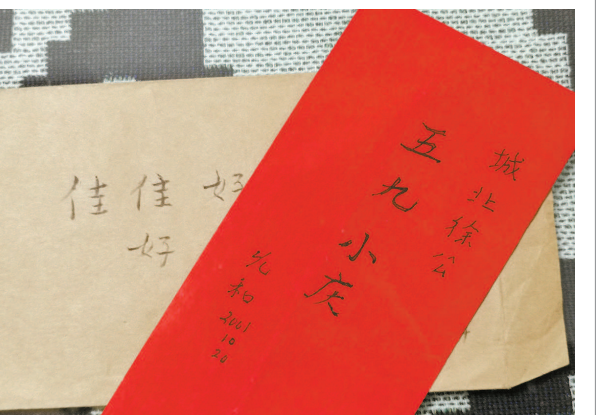 佳佳好
好
城北徐公
五九小庆
兆和
2001
10
20